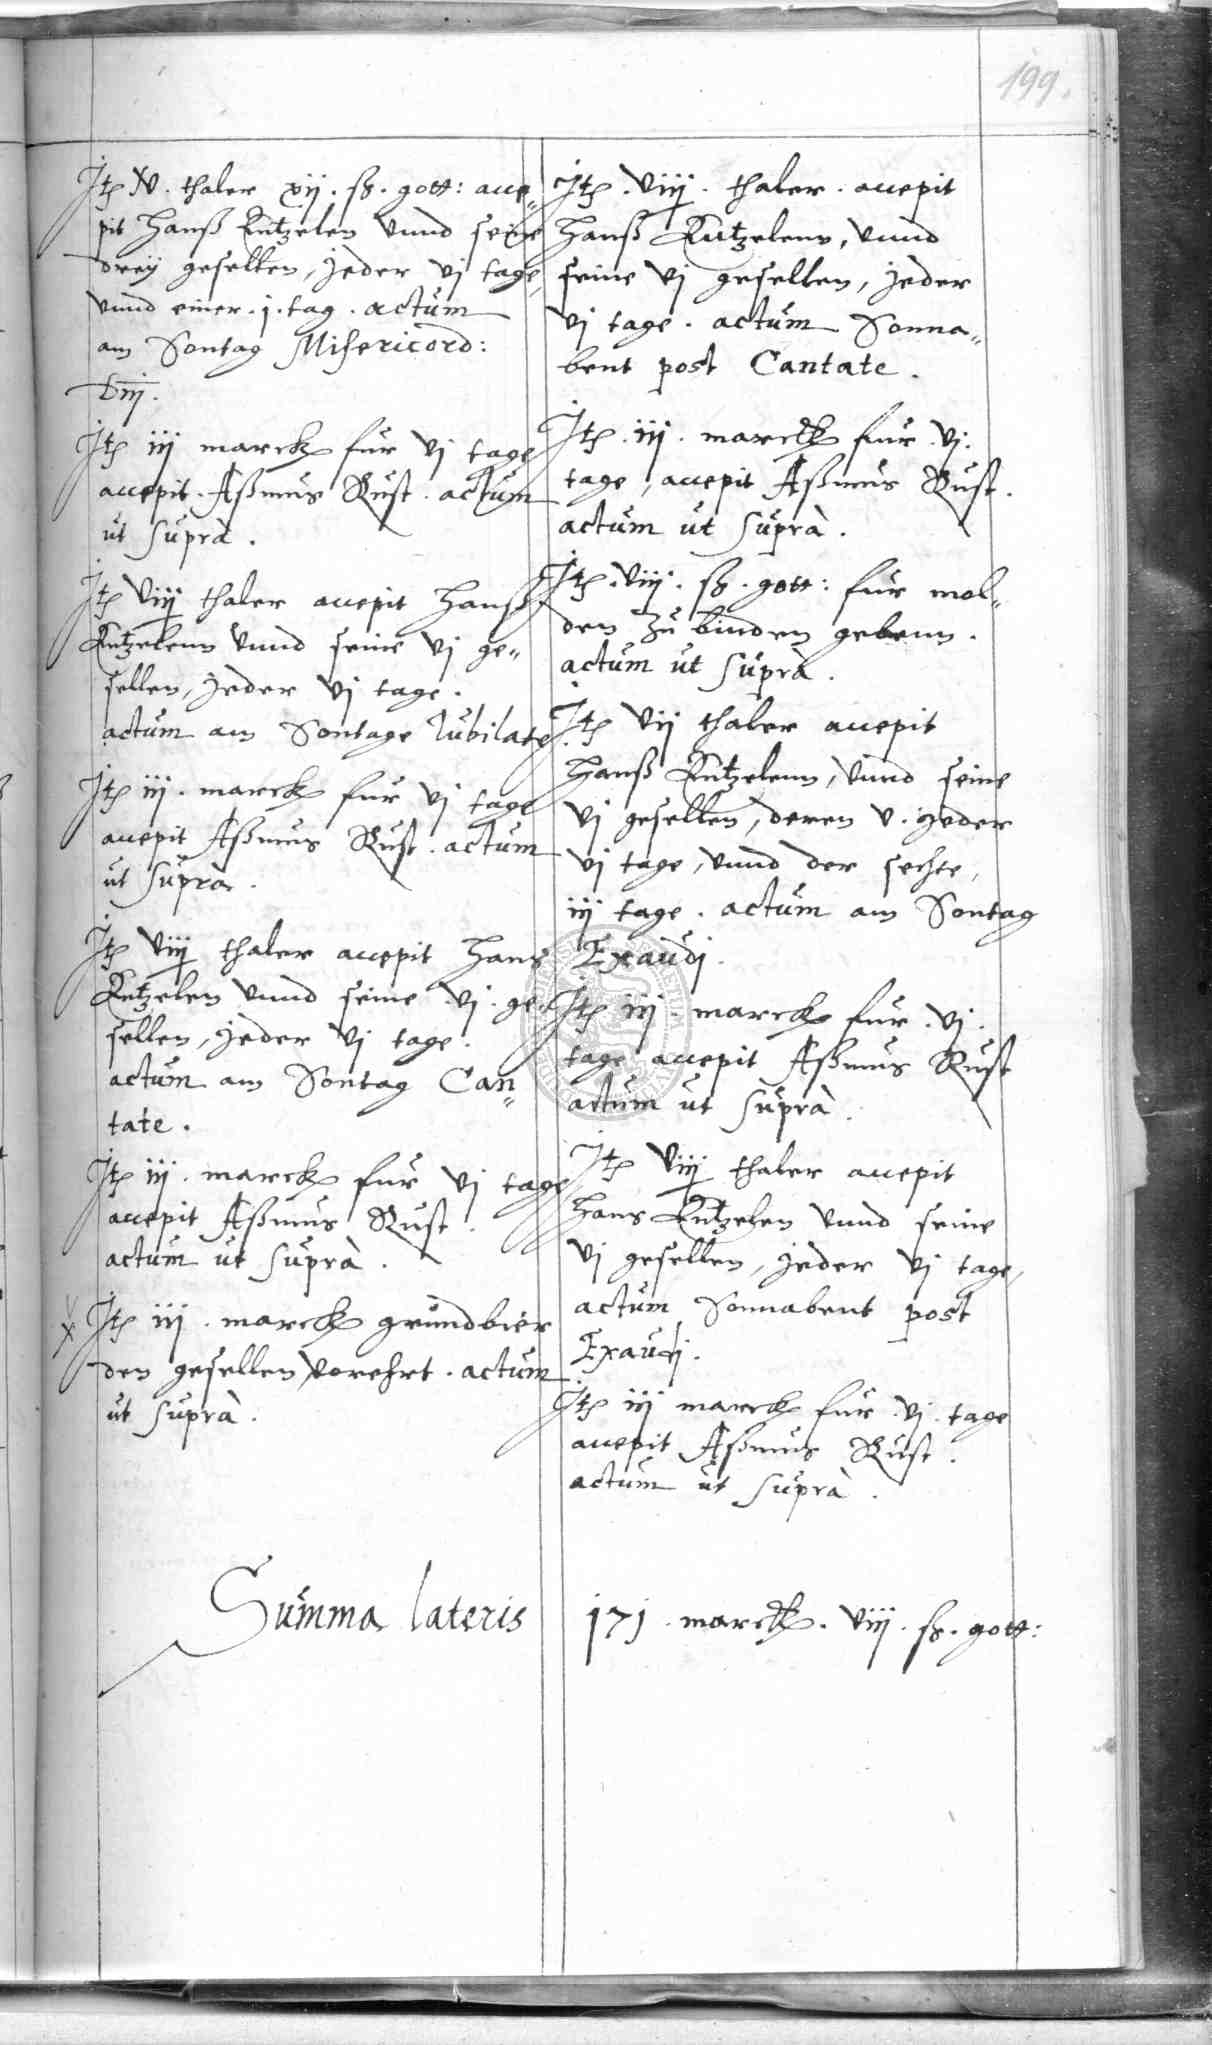 199.
Jtē iv. thaler xij. ß. gott: acce=
pit Hanß Kutzelen vnnd seine
dreÿ gesellen, jeder vj tage,
vnnd einer .j. tag. actum
am Sontag Misericord:
Dnj.
Jtē iij marck fur vj tage
accepit. Aßmus Rust. actum
ut suprà.
Jtē viij thaler accepit Hanß
Kutzelenn vnnd seine vj ge=
sellen, jeder vj tage.
actum am Sontage Iubilate
Jtē iij. marck fur vj tage
accepit Aßmus Rust. actum
ut suprà.
Jtē viij thaler accepit Hans
Kutzelen vnnd seine .vj. ge=
sellen, jeder vj tage.
actum am Sontag Can=
tate.
Jtē iij. marck fur vj tage
accepit Aßmus Rust.
actum ut suprà.
Jtē iij. marck grundbier
den gesellen vorehrt. actum
ut suprà.
Jtē. viij. thaler. accepit
Hanß Kutzelenn, vnnd
seine vj gesellen, jeder
vj tage. actum Sonna=
bent post Cantate.
Jtē. iij. marck fur .vj.
tage, accepit Aßmus Rust.
actum ut suprà.
Jtē. viij. ß. gott: fur mol=
den zu binden gebenn.
actum ut suprà.
Jtē vij thaler accepit
Hanß Kutzelenn, vnnd seine
vj gesellen, deren v. jeder
vj tage, vnnd der sechte,
iij tage. actum am Sontag
Exaudj.
Jtē iij. marck fur .vj.
tage accepit Aßmus Rust
actum ut suprà.
Jtē viij thaler accepit
Hans Kutzelen vnnd seine
vj gesellen, jeder vj tage,
actum Sonnabent post
Exaudj.
Jtē iij marck fur .vj. tage
accepit Aßmus Rust.
actum ut suprà.
Summa lateris 171. marck. viij. ß. gott: